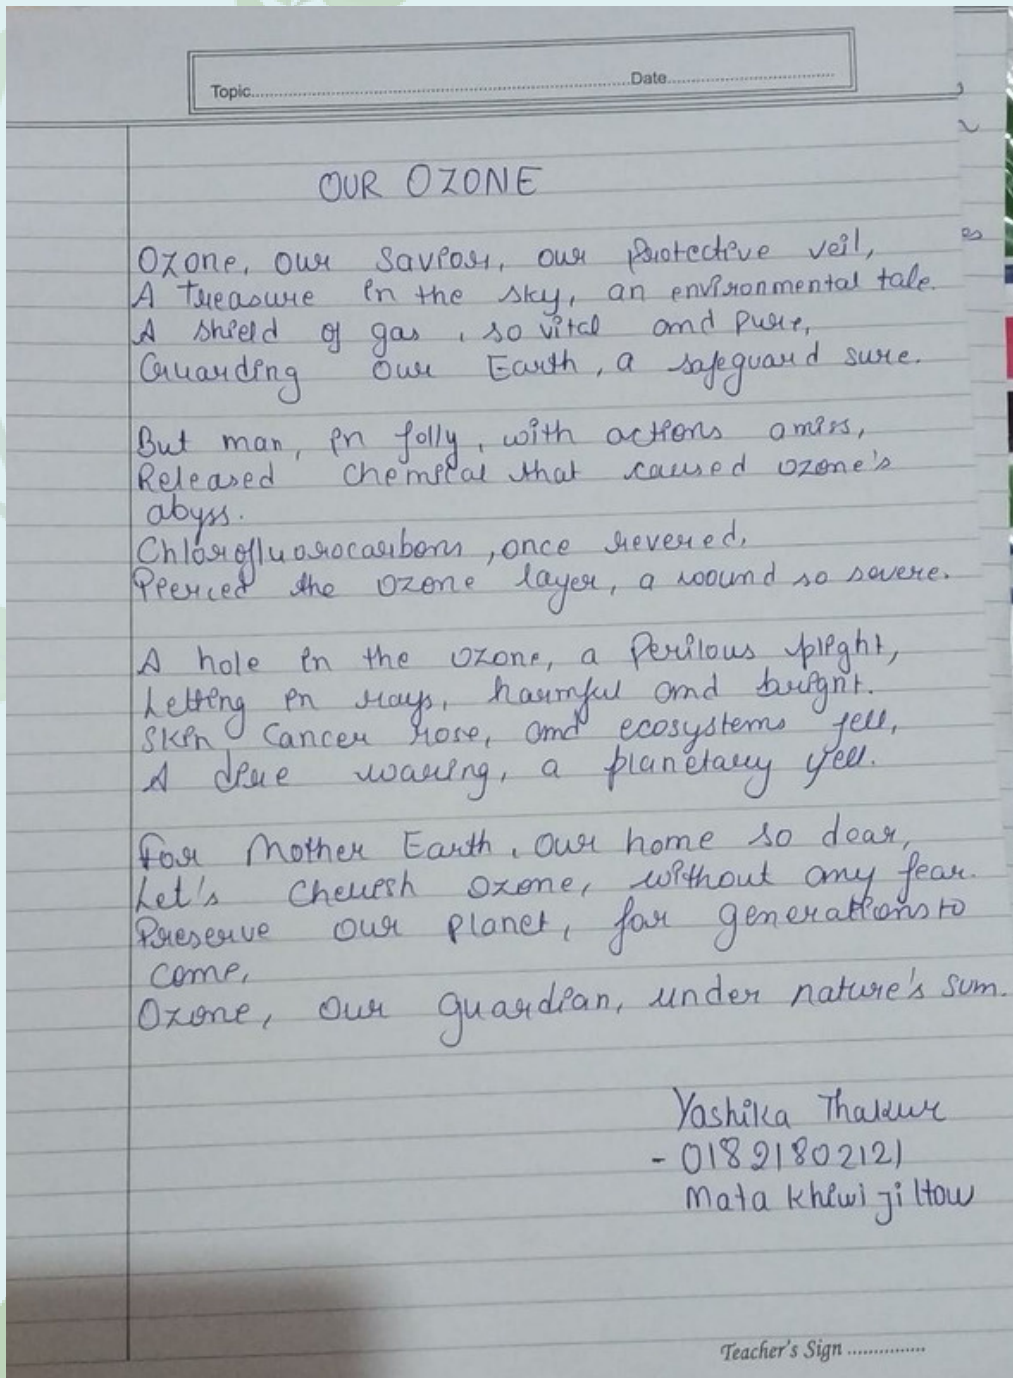 Topic.......................Date.......................
OUR OZONE
Ozone, our savior, our protective veil,
A treasure in the sky, an environmental tale.
A shield of gas, so vital and pure,
Guarding our Earth, a safeguard sure.
But man, in folly, with actions amiss,
Released chemical that caused ozone's
abyss.
Chlorofluorocarbons, once revered,
Pierced the ozone layer, a wound so severe.
A hole in the ozone, a perilous plight,
Letting in rays, harmful and bright.
Skin cancer rose, and ecosystems fell,
A dire waring, a planetary yell.
For Mother Earth, our home so dear,
Let's cherish ozone, without any fear.
Preserve our planet, for generations to
come,
Ozone, our guardian, under nature's sum.
Yashika Thakur
- 01821802121
Mata
Teacher's Sign ...............